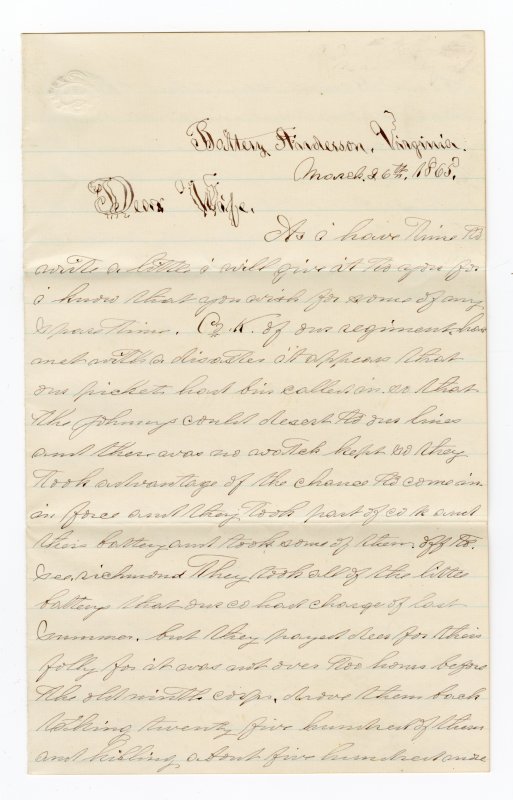 Battery Anderson, Virginia.
March 26th, 1865.
Dear Wife.
As i have time to
write a little i will give it to you for
i know that you wish for some of my
spare time. Co. K. of our regiment has
met with a disaster it appears that
our pickets had bin called in so that
the Johnnys could desert to our lines
and ther was no watch kept so they
took advantage of the chance to come in
in force and they took part of co k and
their battery and took some of them off to
see richmond They took all of the little
batterys that our co had charge of last
summer. but they payed deer for their
folly for it was not over two hours before
the old ninth corps. drove them back
taking twenty five hundred of them
and killing about five hundred more